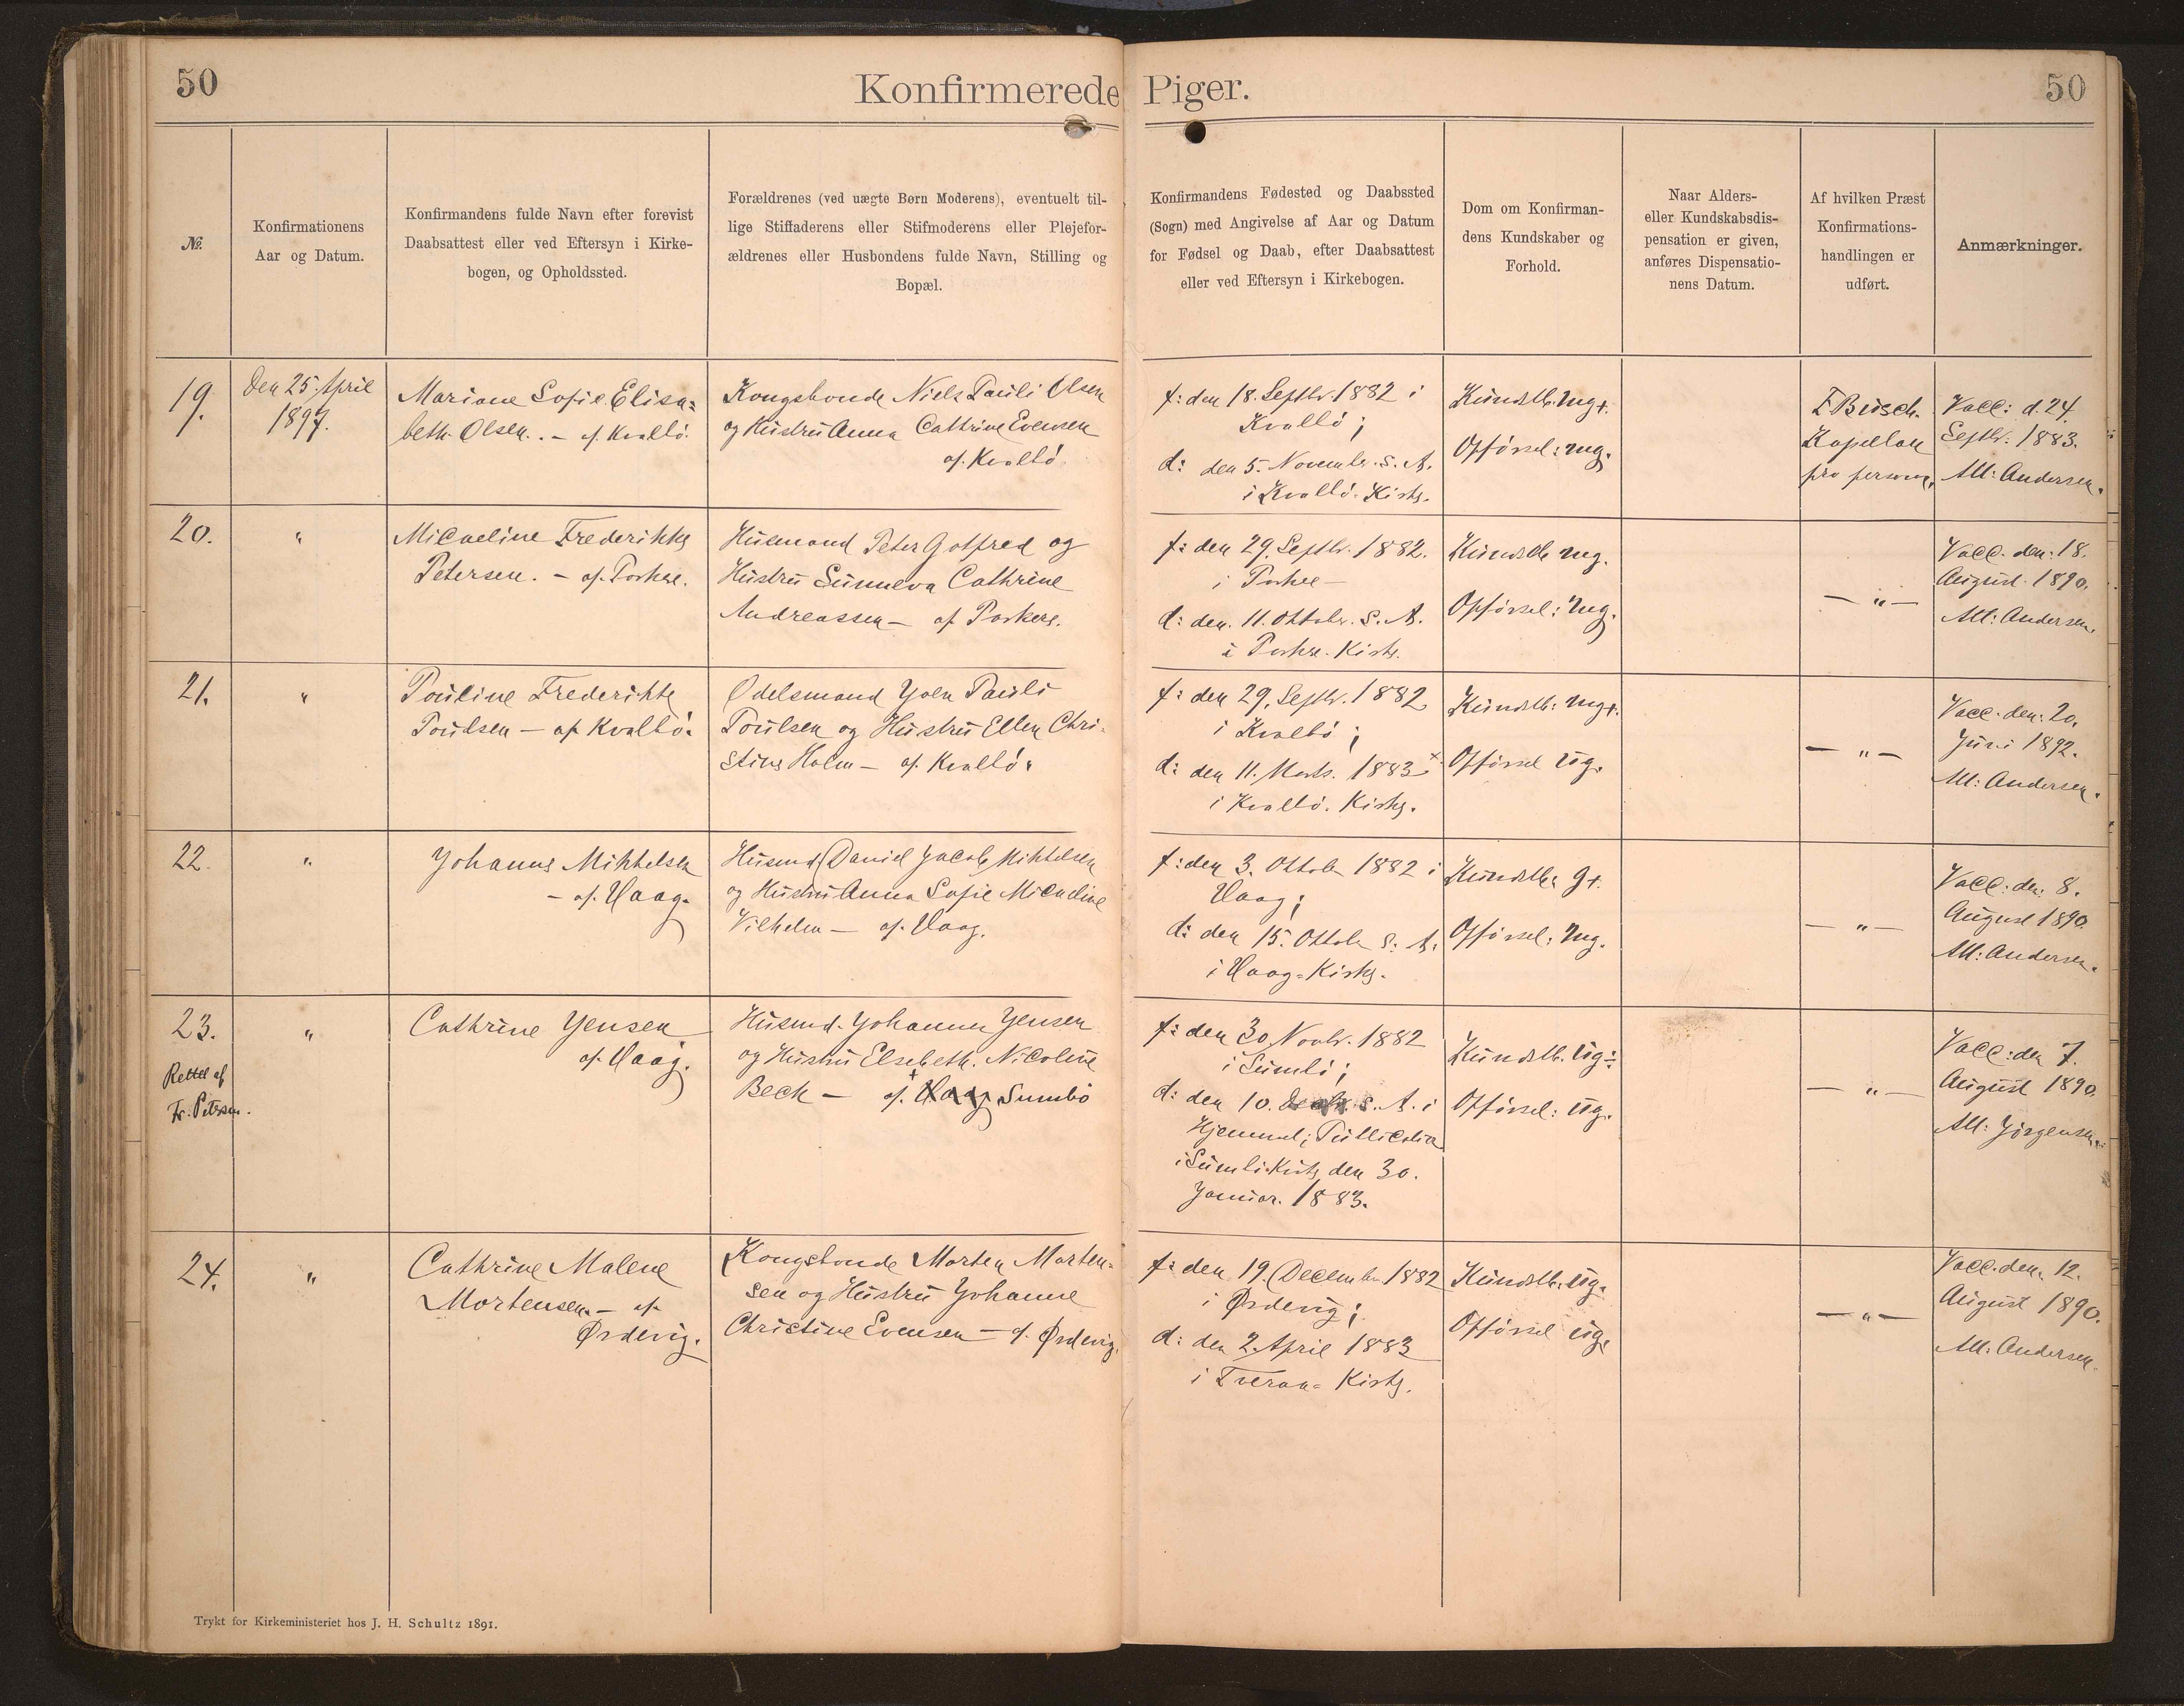 50
Konfirmerede Piger.
50
No.
Konfirmationens
Aar og Datum.
Konfirmandens fulde Navn efter forevist
Daabsattest eller ved Eftersyn i Kirke-
bogen, og Opholdssted.
Forældrenes (ved uægte Børn Moderens), eventuelt til-
lige Stiffaderens eller Stifmoderens eller Plejefor-
ældrenes eller Husbondens fulde Navn, Stilling og
Bopæl.
Konfirmandens Fødested og Daabssted
(Sogn) med Angivelse af Aar og Datum
for Fødsel og Daab, efter Daabsattest
eller ved Eftersyn i Kirkebogen.
Dom om Konfirman-
dens Kundskaber og
Forhold.
Naar Alders-
eller Kundskabsdis-
pensation er given,
anføres Dispensatio-
nens Datum.
Af hvilken Præst
Konfirmations-
handlingen er
udført.
Anmærkninger.
19.
Den 25. April
1897.
Mariane Sofie Elisa=
beth Olsen. - af Kvalbø.
Kongsbonde Niels Pauli Olsen
og Hustru Anna Cathrine Evensen
af Kvalbø.
f: den 18. Septbr. 1882 i
Kvalbø;
d: den 5. Novembr. S. A.
i Kvalbø Kirke.
Kundskb. mg+.
Opførsel: mg.
E Busch.
Kapellan
pro persona.
Vacc: d. 24.
Septbr: 1883.
Att: Andersen.
20.
"
Micaeline Frederikke
Petersen. - af Porkere.
Husmand Peter Gotfred og
Hustru Sunneva Cathrine
Andreassen - af Porkere.
f: den 29. Septbr. 1882.
i Porkere -
d: den 11. Oktobr. S. A.
i Porkere Kirke.
Kundskb mg.
Opførsel: mg.
- " -
Vacc. den: 18.
August 1890.
Att: Andersen.
21.
"
Pouline Frederikke
Poulsen - af Kvalbø.
Odelsmand Joen Pauli
Poulsen og Hustru Ellen Chri-
stine Holm - af Kvalbø.
f: den 29. Septbr. 1882
i Kvalbø;
d: den 11. Marts. 1883
i Kvalbø. Kirke.
Kundskb: mg+.
Opførsel ug.
- " -
Vacc. den: 20.
Juni 1892.
Att: Andersen.
22.
"
Johanne Mikkelsen
- af Vaag.
Husmd. Daniel Jacob Mikkelsen
og Hustru Anna Sofie Micaeline
Vilhelm - af Vaag.
f: den 3. Oktobr 1882 i
Vaag;
d: den 15. Oktobr S: A.
i Vaag=Kirke.
Kundskb: g+.
Opførsel: mg.
- " -
Vacc: den: 8.
August 1890.
Att: Andersen.
23.
Rettet af
Fr. Petersen.
"
Cathrine Jensen
af Vaag.
Husmd. Johannes Jensen
og Hustru Elsebeth Nicoline
Bech - af Vaag Sumbø
f: den 30 Novbr. 1882
i Sumbø;
d: den 10. S. A. i
Hjemmet; Publiceret
i Sumbø Kirke den 30.
Januar. 1883.
Kundskb. ug÷
Opførsel: ug.
- " -
Vacc: den 7.
August 1890.
Att: Jørgensen.
24.
"
Cathrine Malene
Mortensen. - af
Ørdevig.
Kongsbonde Morten Morten=
sen og Hustru Johanne
Christine Evensen - af Ørdevig.
f: den 19. December 1882
i Ørdevig;
d: den 2. April 1883
i Tveraa= Kirke.
Kundskb. ug.
Opførsel ug.
- " -
Vacc. den: 12.
August 1890.
Att. Andersen.
Trykt for Kirkeministeriet hos J. H. Schultz 1891.